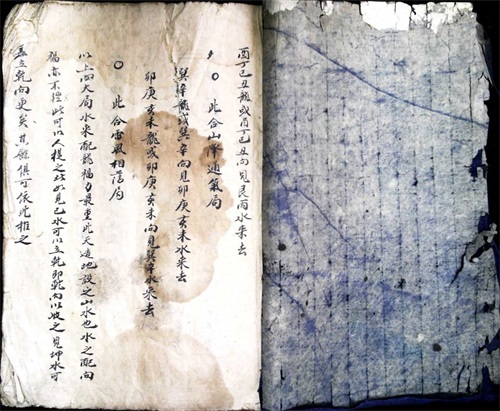 酉丁巳丑龍或酉丁巳丑向見艮丙水來去
○ 此合山澤通氣局
巽辛龍或巽辛向見卯庚亥未水來去
卯庚亥未龍或卯庚亥未向見巽辛水來去
○ 此合雷風相薄局
以上四大局水來配龍福力最重此天造地設之山水也水之配向
福亦不輕此可以人捉之此如見巳水可以立乾即乾向以收之見坤水可
立乾向更矣其餘俱可依此推之